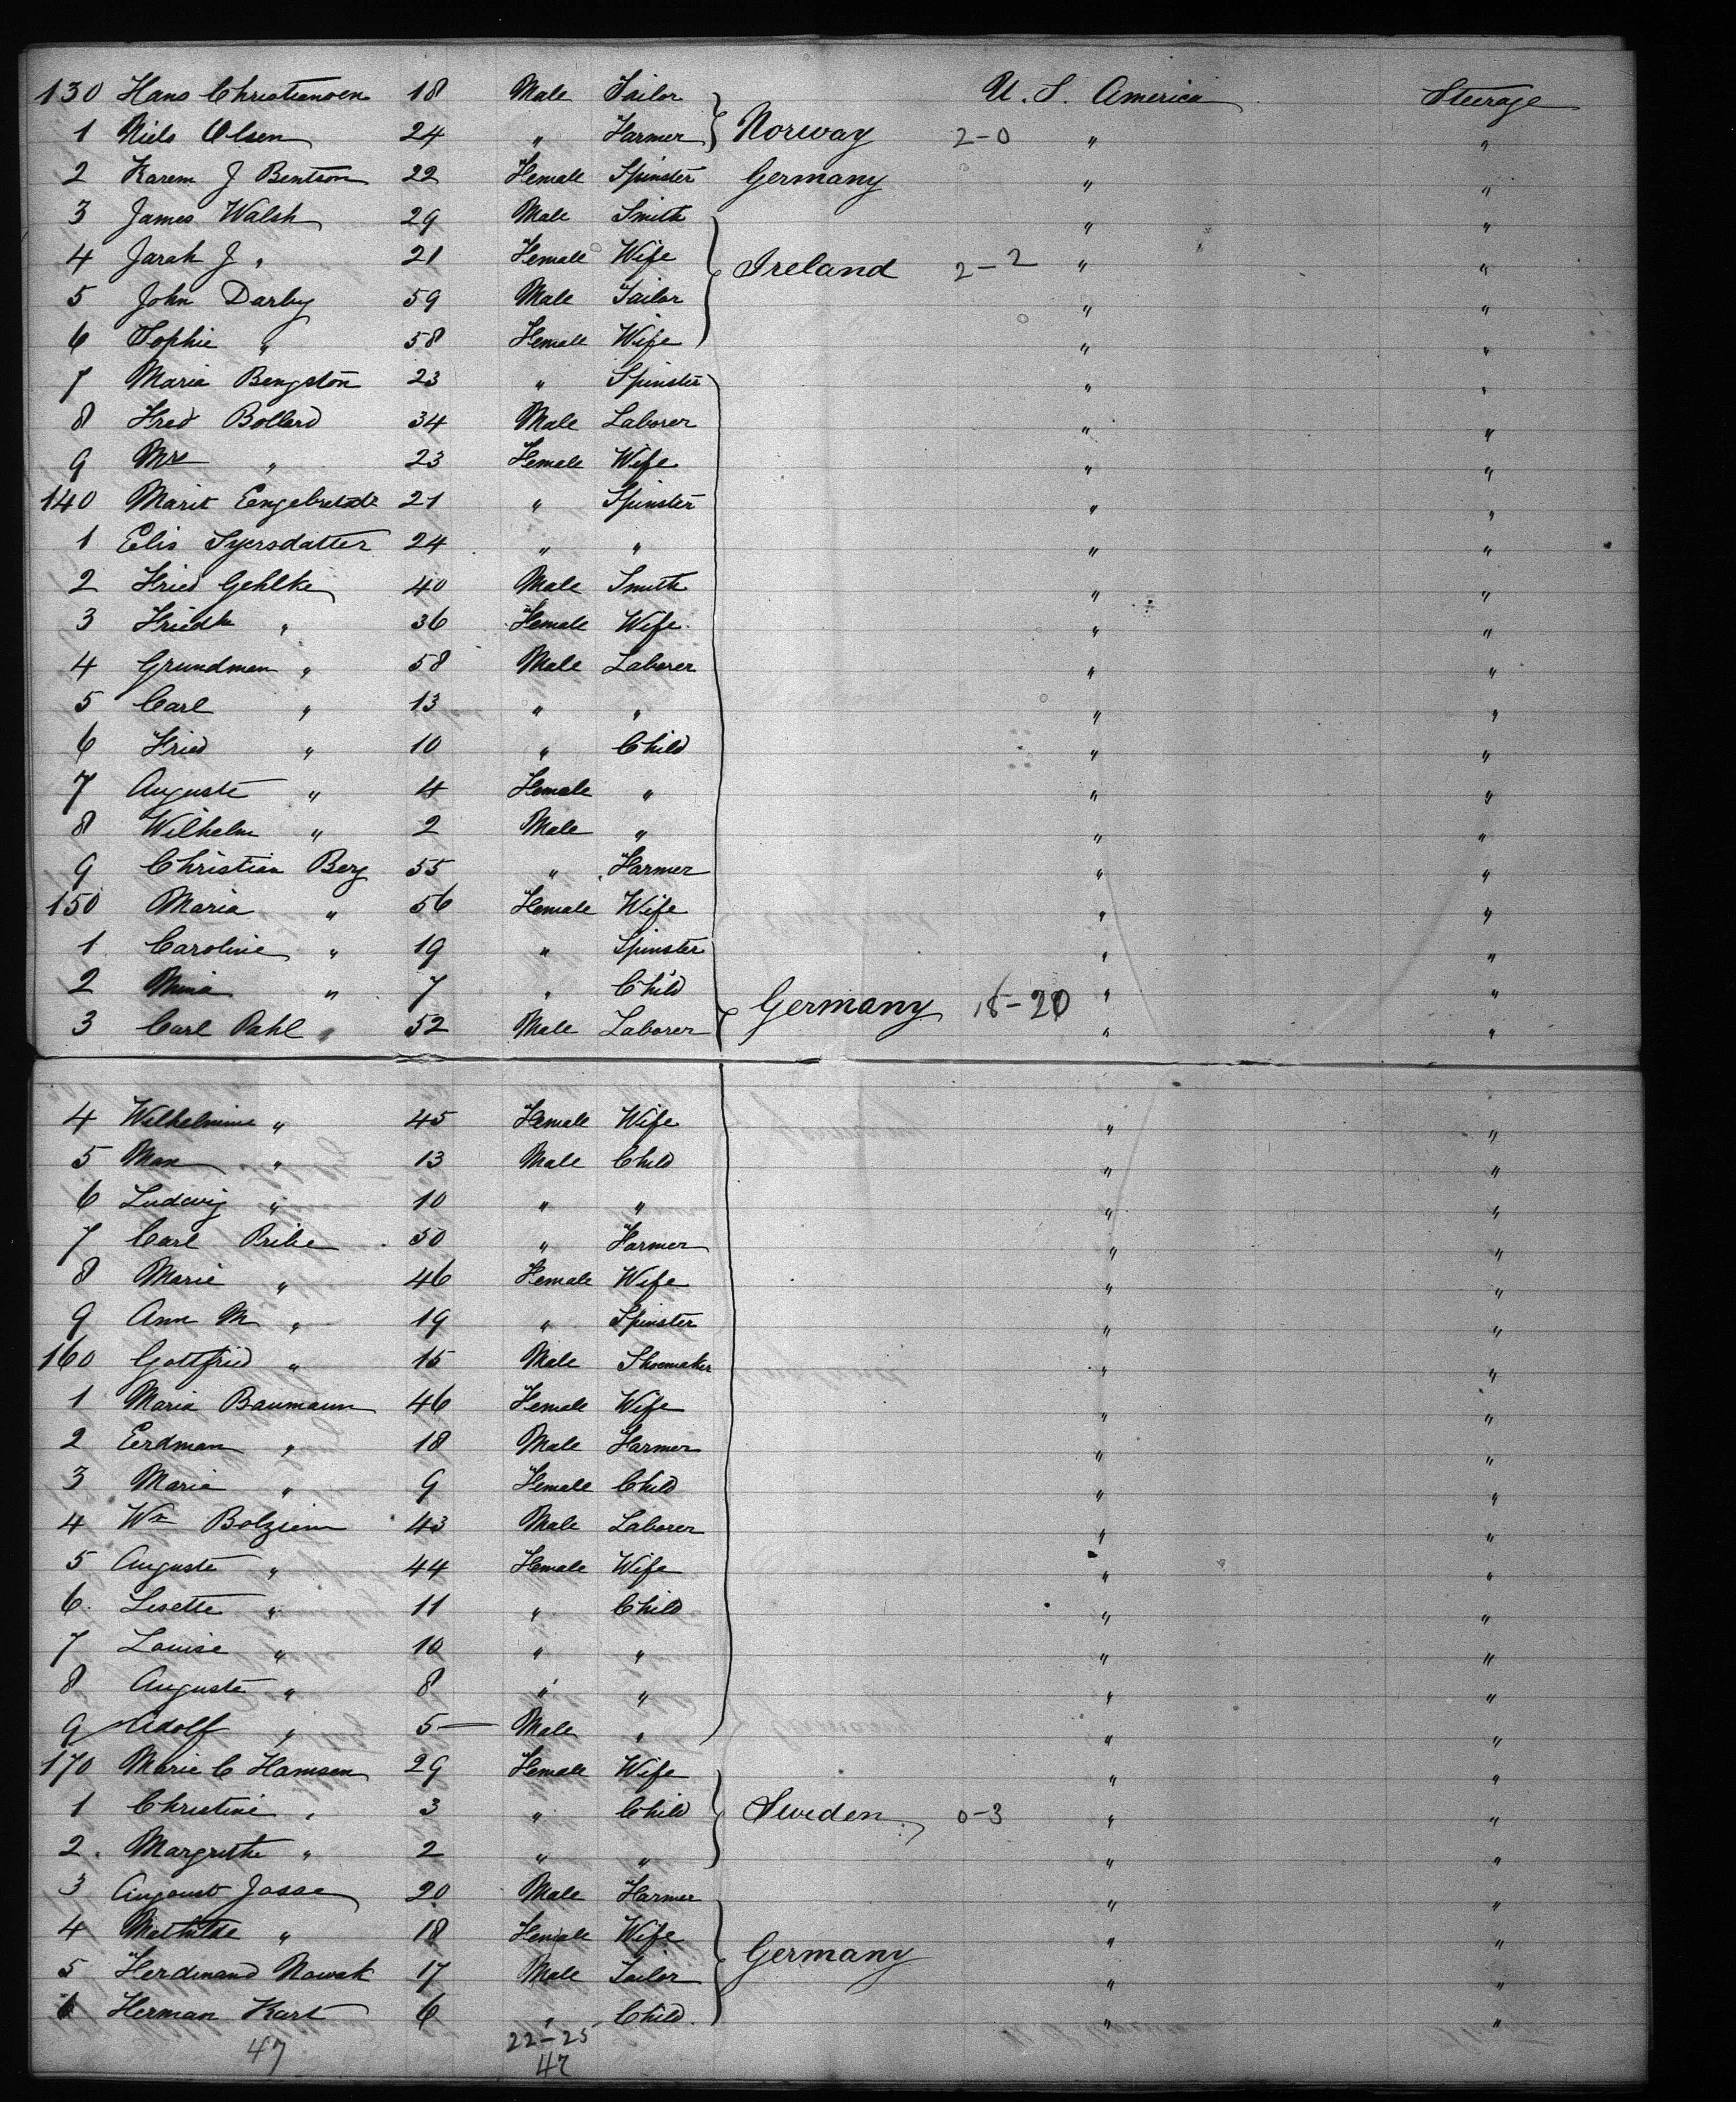 130 Hans Christiansen 18 Male Tailor U. S. America Steerage
1 Niels Olsen 24 " Farmer } Norway 2-0 " "
2 Karem J Bentson 22 Female Spinster Germany " "
3 James Walsh 29 Male Smith " "
4 Sarah J " 21 Female Wife Ireland 2-2 " "
5 John Darby 59 Male Tailor " "
6 Sophie " 58 Female Wife " "
7 Maria Bengston 23 " Spinster " "
8 Fred Bollard 34 Male Laborer " "
9 Mrs " 23 Female Wife " "
140 Marit 21 " Spinster " "
1 Elis Syersdatter 24 " " " "
2 Fried Gehlke 40 Male Smith " "
3 Friedk " 36 Female Wife " "
4 Grundman " 58 Male Laborer " "
5 Carl " 13 " " " "
6 Fried " 10 " Child " "
7 Auguste " 4 Female " " "
8 Wilhelm " 2 Male " " "
9 Christian Berg 55 " Farmer " "
150 Maria " 56 Female Wife " "
1 Caroline " 19 " Spinster " "
2 Mina " 7 " Child " "
3 Carl Pahl 52 Male Laborer } Germany 18-20 " "
4 Wilhelmine " 45 Female Wife " "
5 Max " 13 Male Child " "
6 Ludwig " 10 " " " "
7 Carl Pribe 50 " Farmer " "
8 Marie " 46 Female Wife " "
9 Ann M " 19 " Spinster " "
160 Gottfried " 15 Male Shoemaker " "
1 Maria Baumann 46 Female Wife " "
2 Eerdman " 18 Male Farmer " "
3 Maria " 9 Female Child " "
4 Wm Bolzien 43 Male Laborer " "
5 Auguste " 44 Female Wife " "
6 Lisette " 11 " Child " "
7 Louise " 10 " " " "
8 Auguste " 8 " " " "
9 Adolf " 5 — Male " " "
170 Marie C Hansen 29 Female Wife " "
1 Christine " 3 " Child } Sweden 0-3 " "
2 Margrethe " 2 " " " "
3 August Jasse 20 Male Farmer " "
4 Mathilde " 18 Female Wife Germany " "
5 Ferdinand Nowak 17 Male Tailor " "
6 Herman Kart 6 " Child " "
47 22-25
47